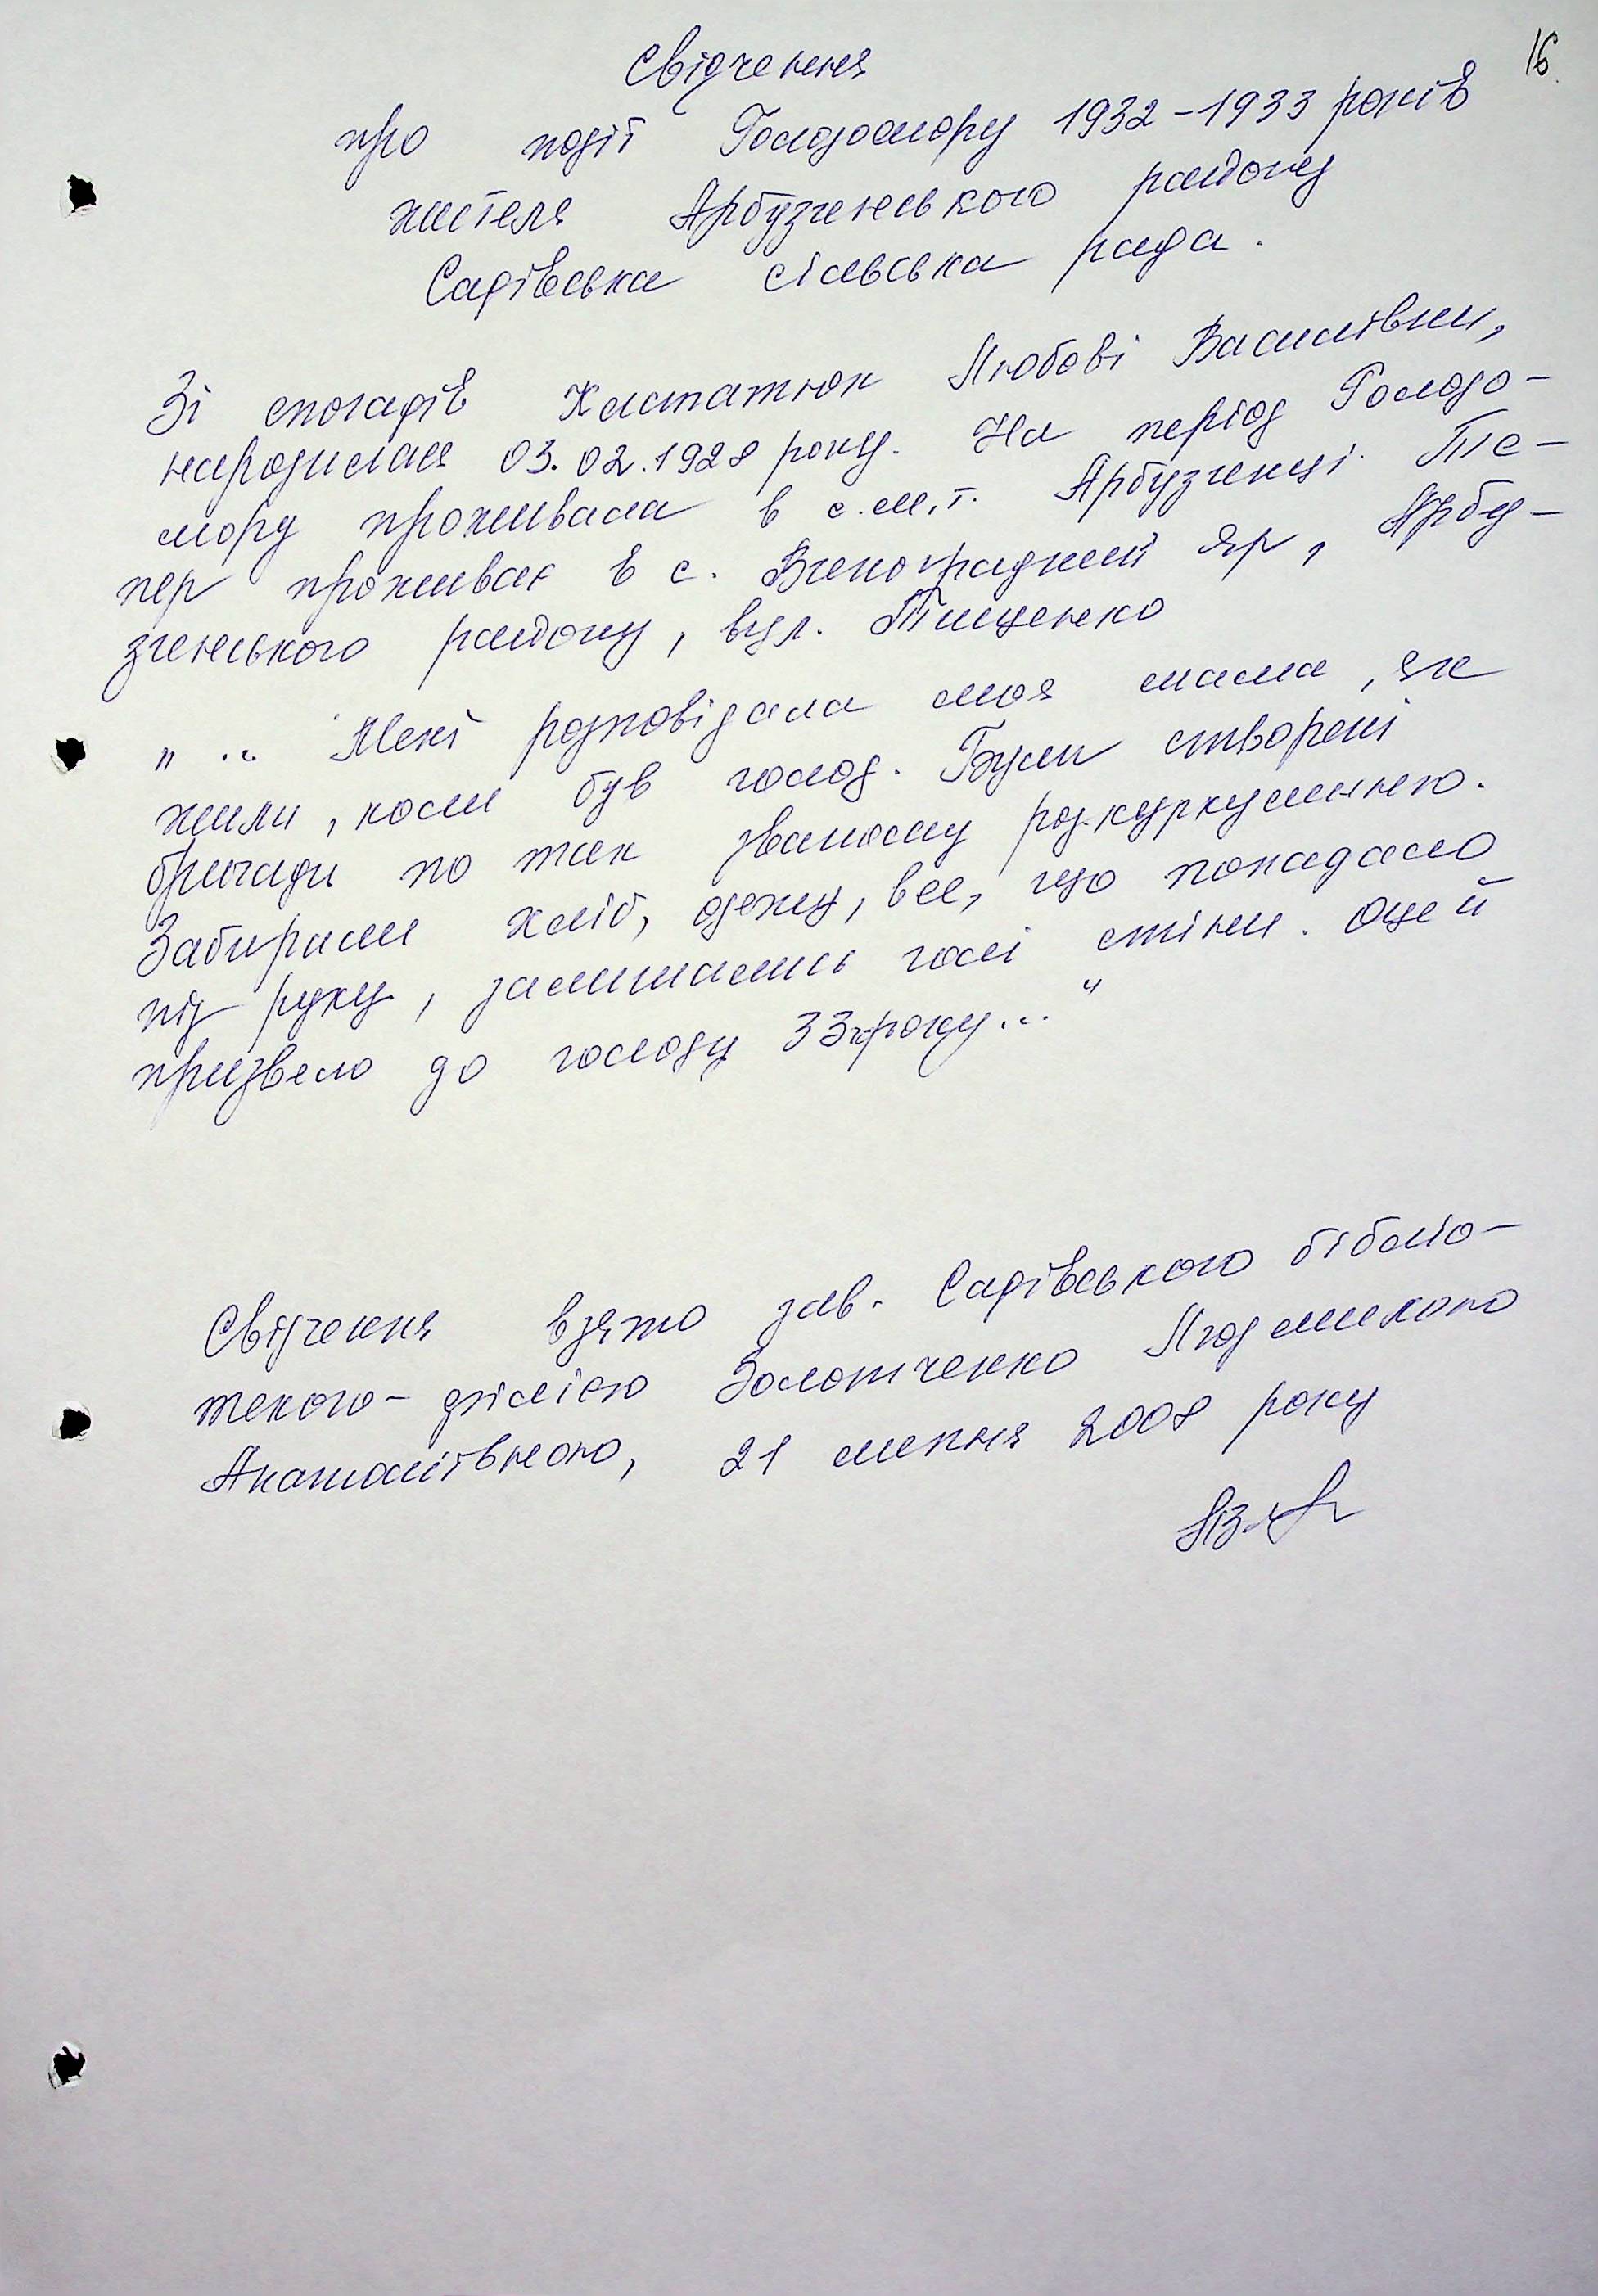 16
Свідчення
про події Голодомору 1932-1933 років
жителя Арбузинського району
Садівська сільська рада.
Зі спогадів Любові Василівни,
народилася 03.02.1928 року. На період Голодо-
мору проживала в с.м.т. Арбузинці. Те-
пер проживає в с. Виноградний Яр, Арбу-
зинського району, вул. Тищенко
" .. Мені розповідала моя мама, як
жили, коли був голод. Були створені
бригади по так званому розкуркуленню.
Забирали хліб, одежу, все, що попадало
під руку, залишались голі стіни. Оце й
призвело до голоду 33 року... "
Свідчення взято зав. Садівського бібліо-
текою-філією Золотченко Людмилою
Анатоліївною, 21 липня 2008 року